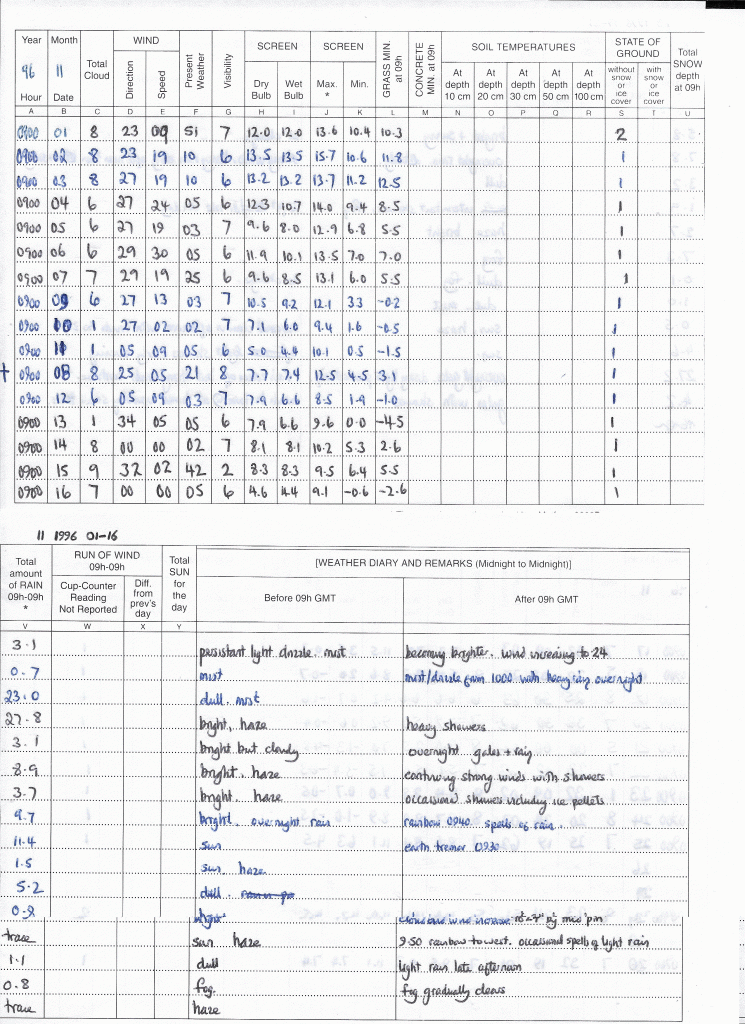 Year Month Total Cloud WIND Present Weather Visibility SCREEN SCREEN GRASS MIN. at 09h CONCRETE MIN. at 09h SOIL TEMPERATURES STATE OF GROUND Total SNOW depth at 09h
96 11 Direction Speed Dry Bulb Wet Bulb Max. * Min. At depth 10 cm At depth 20 cm At depth 30 cm At depth 50 cm At depth 100 cm without snow or ice cover with snow or ice cover
Hour Date
A B C D E F G H I J K L M N O P Q R S T U
0900 01 8 23 09 51 7 12.0 12.0 13.6 10.4 10.3 2
0900 02 8 23 19 10 6 13.5 13.5 15.7 10.6 11.8 1
0900 03 8 27 19 10 6 13.2 13.2 13.7 11.2 12.5 1
0900 04 6 27 24 05 6 12.3 10.7 14.0 9.4 8.5 1
0900 05 6 27 19 03 7 9.6 8.0 12.9 6.8 5.5 1
0900 06 6 29 30 05 6 11.9 10.1 13.5 7.0 7.0 1
0900 07 7 29 19 25 6 9.6 8.5 13.1 6.0 5.5 1
0900 09 6 27 13 03 7 10.5 9.2 12.1 3.3 -0.2 1
0900 10 1 27 02 02 7 7.1 6.0 9.4 1.6 -0.5 1
0900 11 1 05 09 05 6 5.0 4.4 10.1 0.5 -1.5 1
0900 08 8 25 05 21 8 7.7 7.4 12.5 4.5 3.1 1
0900 12 6 05 09 03 7 7.9 6.6 8.5 1.9 -1.0 1
0900 13 1 34 05 05 6 7.9 6.6 9.6 0.0 -4.5 1
0900 14 8 00 00 02 7 8.1 8.1 10.2 5.3 2.6 1
0900 15 9 32 02 42 2 8.3 8.3 9.5 6.4 5.5 1
0900 16 7 00 00 05 6 4.6 4.4 9.1 -0.6 -2.6 1
11 1996 01-16
Total amount of RAIN 09h-09h * RUN OF WIND 09h-09h Total SUN for the day [WEATHER DIARY AND REMARKS (Midnight to Midnight)]
Cup-Counter Reading Not Reported Diff. from prev's day Before 09h GMT After 09h GMT
V W X Y
3.1 persistant light drizzle. mist becoming brighter. wind increasing to 24
0.7 mist mist/drizzle from 1000 with heavy rain overnight
23.0 dull. mist
27.8 bright, haze heavy showers
3.1 bright but cloudy overnight gales + rain
8.9 bright. haze continuing strong winds with showers
3.7 bright. haze occassional showers including ice pellets
9.7 bright. overnight rain rainbow 0940 spells of rain.
11.4 sun earth tremor 0930
1.5 sun haze
5.2 dull.
0.2 bright
trace sun haze 9.50 rainbow to west. occassional spells of light rain
1.1 dull light rain late afternoon
0.8 fog. fog gradually clears
trace haze